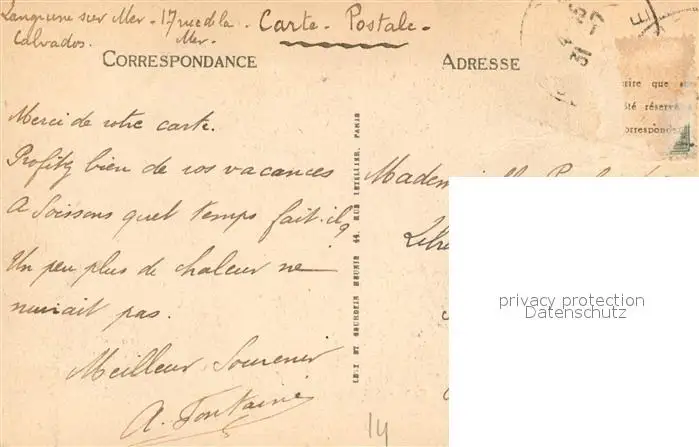 Langrune sur Mer - 17 rue de la Mer -
Calvados.
Carte - Postale -
CORRESPONDANCE
ADRESSE
Merci de votre carte.
Profitez bien de vos vacances
A Soissons quel temps fait-il?
Un peu plus de chaleur ne
nuirait pas.
Meilleur Souvenir
A. Fontaine
LEVY ET NEURDEIN REUNIS 44, RUE LETELLIER, PARIS
rire que
té réservé
orrespond
Mademoiselle
14
privacy protection
Datenschutz